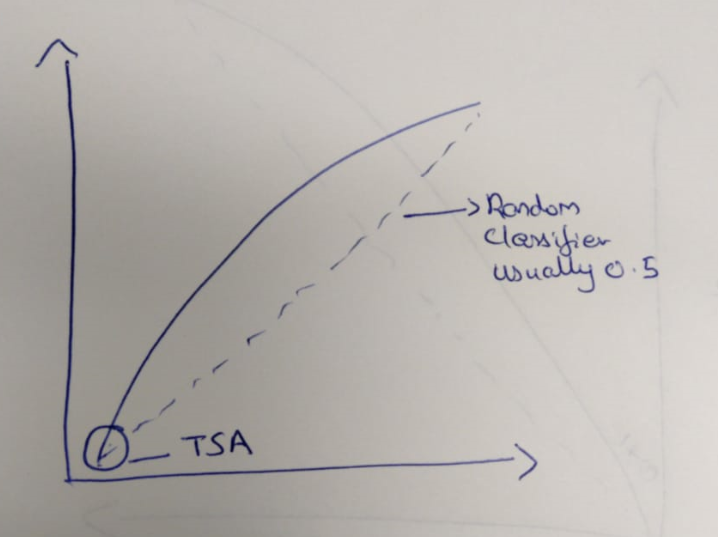 Random
Classifier
usually 0.5
TSA